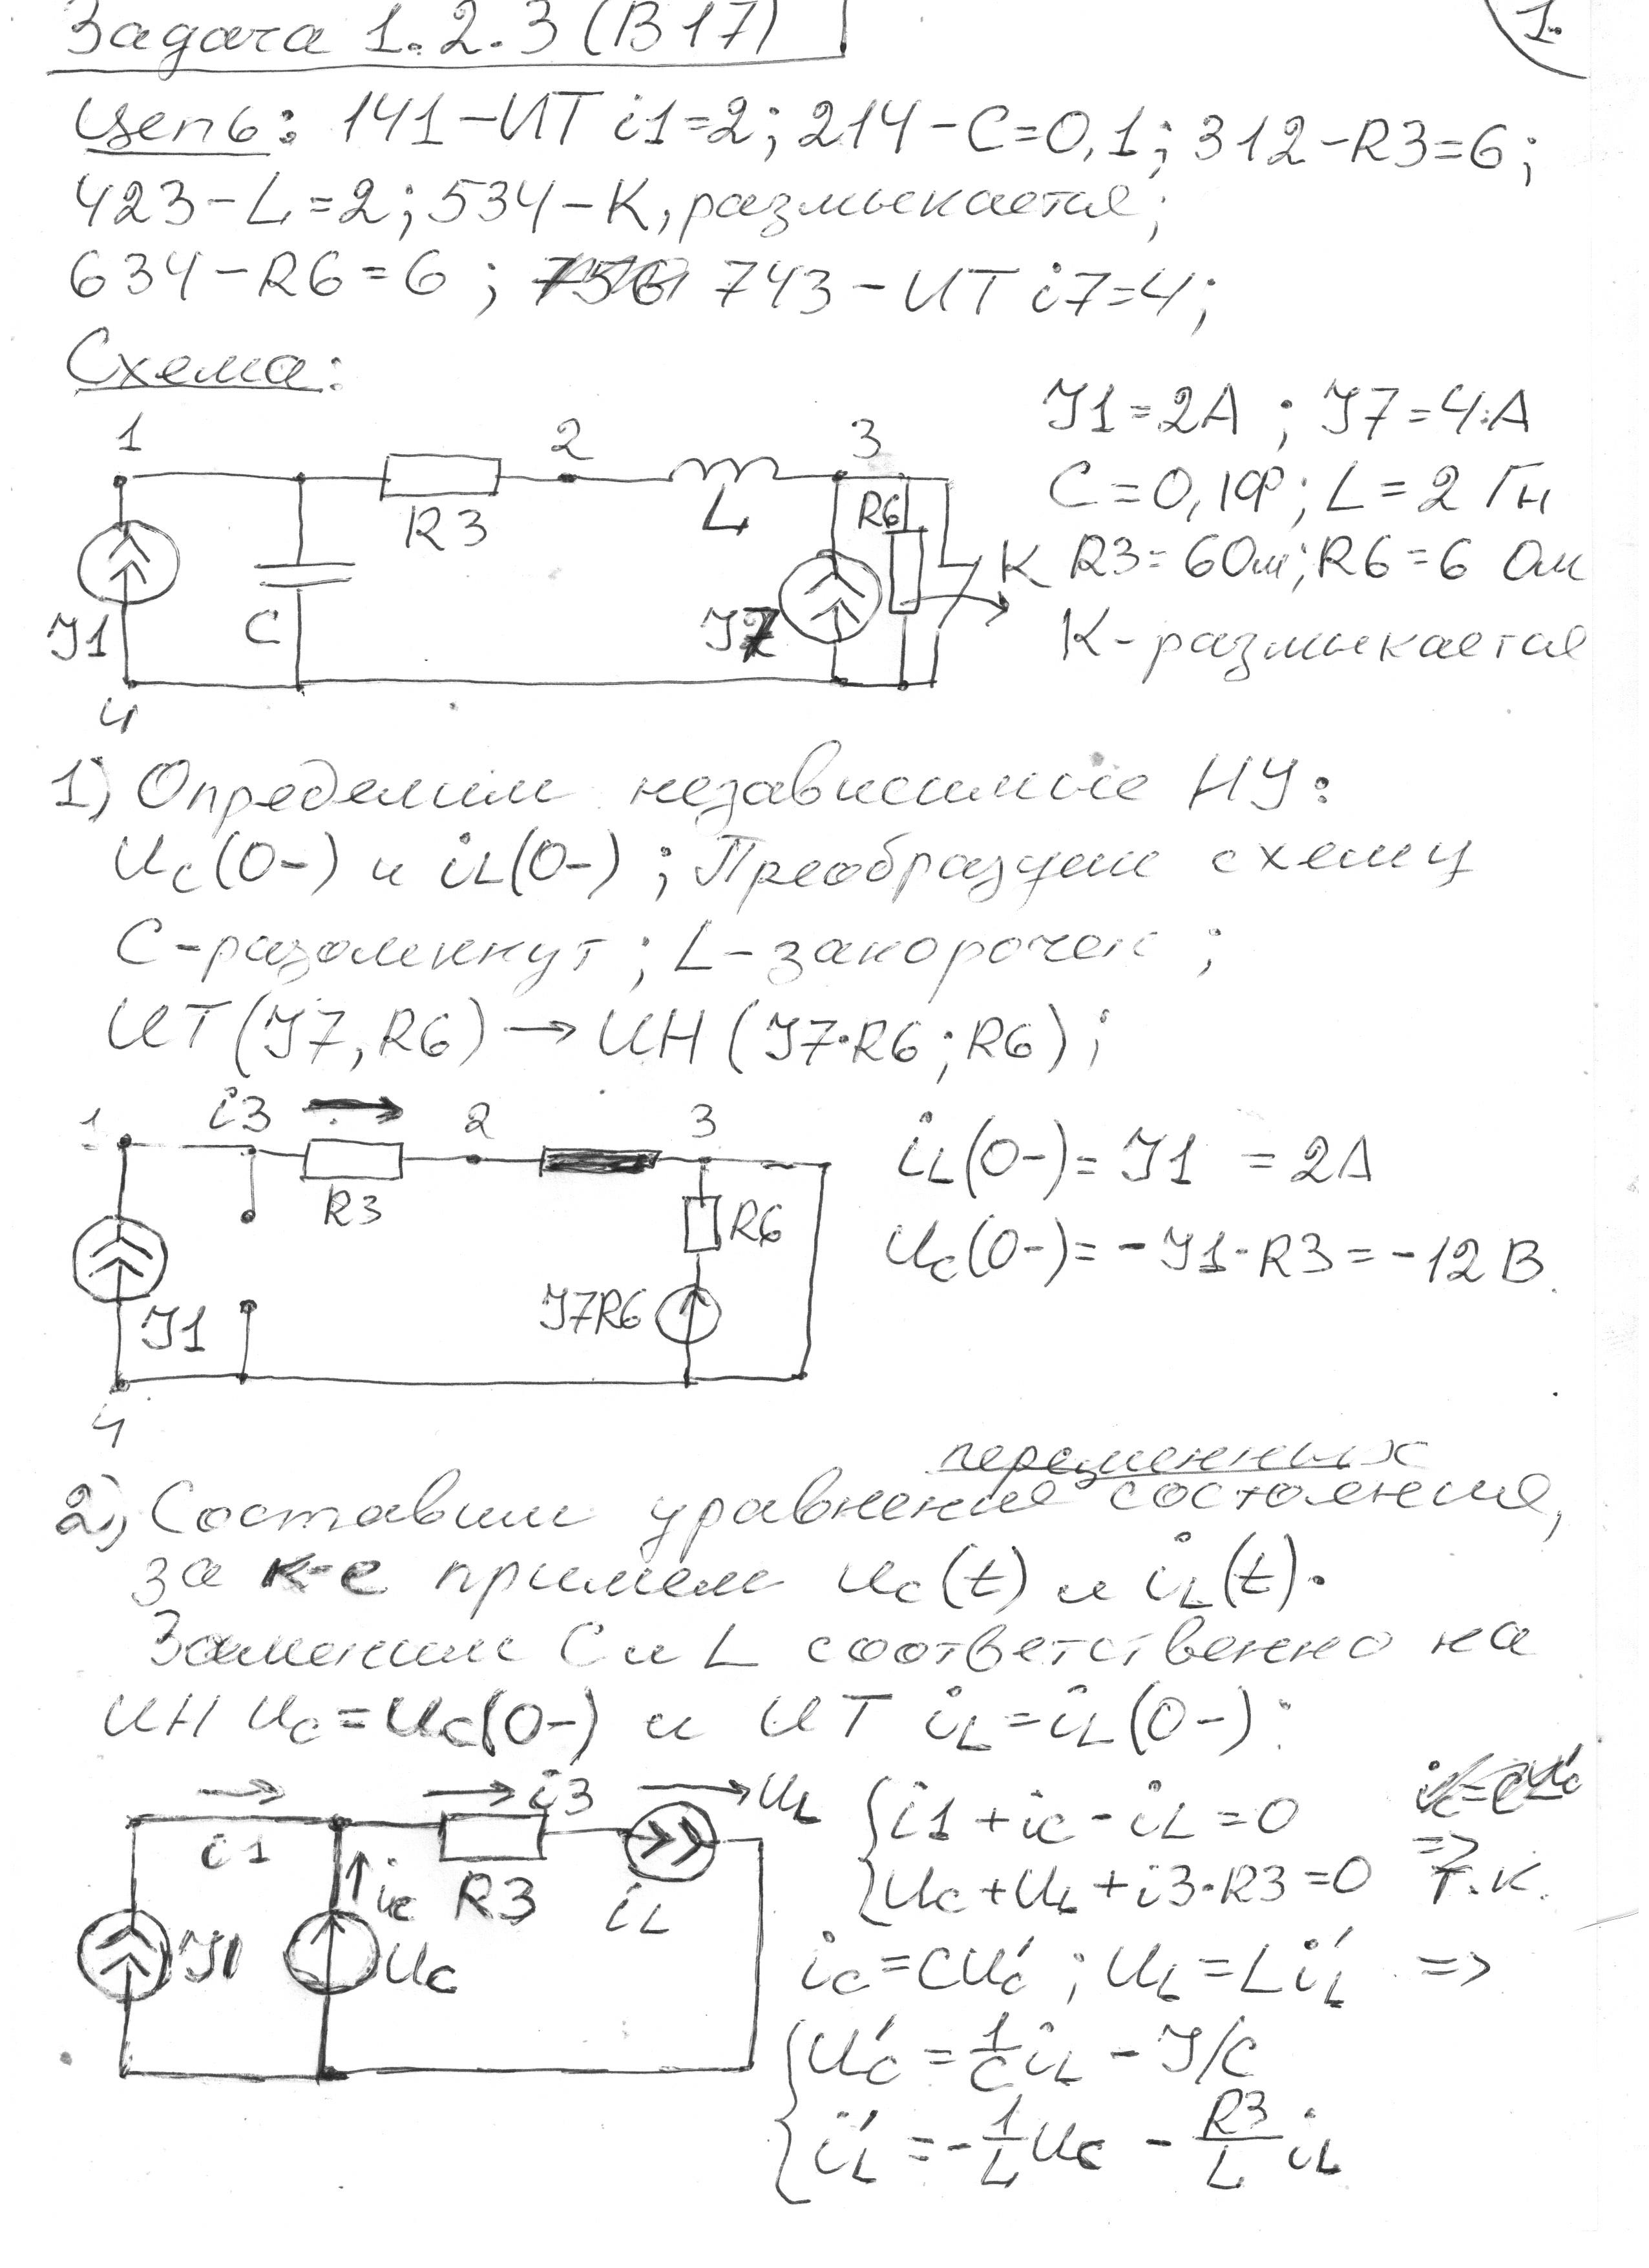 Задача 1.2.3 (В17)
1.
Цепь: 141 – ИТ i1=2; 214 – C=0,1; 312 – R3=6;
423 – L=2; 534 – К, размыкается;
634 – R6=6; 743 – ИТ i7=4;
Схема:
J1=2А; J7=4А
C=0,1Ф; L=2 Гн
R3=6Ом; R6=6 Ом
К-размыкается
1 2 3
R3 L R6 К
J1 C J7
4
1) Определим независимые НУ:
Uc(0-) и iL(0-); Преобразуем схему
C-разомкнут; L-закорочен;
ИТ(J7,R6) → ИН(J7·R6; R6);
1 i3 2 3
R3 R6
J1 J7R6
4
iL(0-)= J1 = 2А
Uc(0-)= -J1·R3 = -12В
2) Составим уравнения переменных состояния,
за к-е примем uc(t) и iL(t).
Заменим C и L соответственно на
ИН uc=uc(0-) и ИТ iL=iL(0-):
i1 i3 UL
ic R3 iL
J1 Uc
i1+ic-iL=0 =>
Uc+UL+i3·R3=0 т.к.
ic=CU'c; UL=Li'L =>
U'c = 1/C iL - J/C
i'L = -1/L Uc - R3/L iL